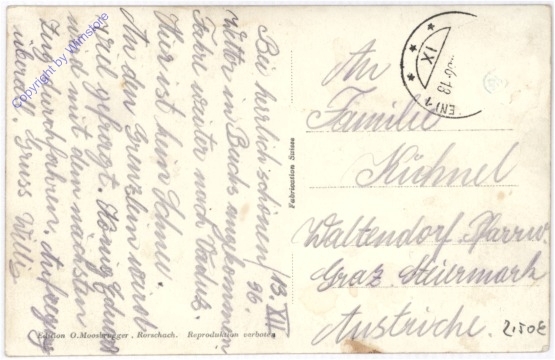 13. XII
36.
Bei herrlich schönen
Wetter in Buchs angekommen
Fahre weiter nach Vaduz.
Hier ist kein Schnee.
An den Grenzlin wird
viel gefragt. König Eduard
wird mit dem nächsten
Zug durchfahren.
überall Gruss Willi
An
Familie
Kühnel
Waltendorf Pfarrw.
Graz Steiermark
Austriche.
IX
Fabrication Suisse
Edition O. Moosbrugger, Rorschach. Reproduktion verboten
2,50€
Copyright by Wimstore